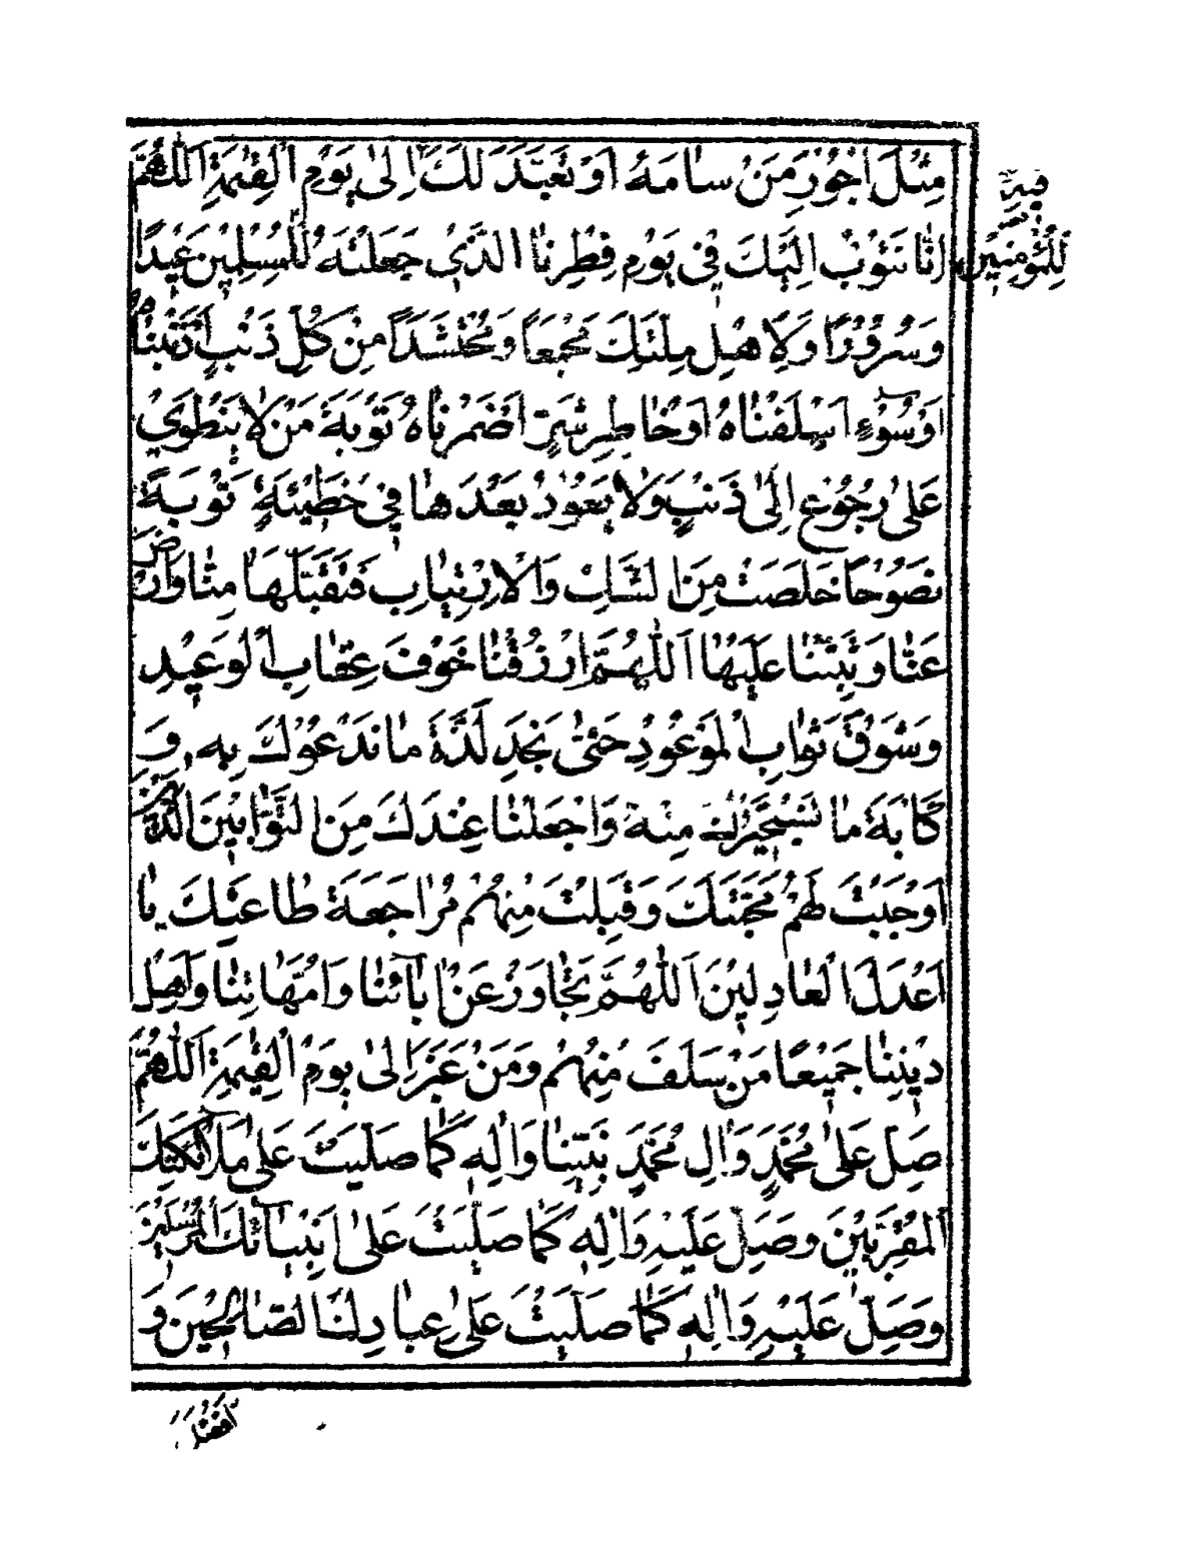 مِثْلَ اُجُورِ مَنْ صامَهُ اَوْ تَعَبَّدَ لَكَ اِلىٰ يَوْمِ الْقِيٰمَةِ اَللّٰهُمَّ
اِنّا نَتُوبُ اِلَيْكَ فى يَوْمِ فِطْرِنَا الَّذى جَعَلْتَهُ لِلْمُسْلِمينَ عيداً
لِلْمُؤْمِنينَ
وَ سُرُوراً وَلِاَهْلِ مِلَّتِكَ مَجْمَعاً وَ مُحْتَشَداً مِنْ كُلِّ ذَنْبٍ اَذْنَبْناهُ
اَوْ سُوءٍ اَسْلَفْناهُ اَوْ خاطِرِ شَرٍّ اَضْمَرْناهُ تَوْبَةَ مَنْ لا يَنْطَوى
عَلىٰ رُجُوعٍ اِلىٰ ذَنْبٍ وَلا يَعُودُ بَعْدَها فى خَطيئَةٍ تَوْبَةً
نَصُوحاً خَلَصَتْ مِنَ الشَّكِّ وَالْاِرْتِيابِ فَتَقَبَّلْها مِنّا وَارْضَ
عَنّا وَ ثَبِّتْنا عَلَيْها اَللّٰهُمَّ ارْزُقْنا خَوْفَ عِقابِ الْوَعيدِ
وَ شَوْقَ ثَوابِ الْمَوْعُودِ حَتّىٰ نَجِدَ لَذَّةَ ما نَدْعُوكَ بِهِ وَ
كَآبَةَ ما نَسْتَجيرُكَ مِنْهُ وَاجْعَلْنا عِنْدَكَ مِنَ التَّوّابينَ الَّذينَ
اَوْجَبْتَ لَهُمْ مَحَبَّتَكَ وَ قَبِلْتَ مِنْهُمْ مُراجَعَةَ طاعَتِكَ يا
اَعْدَلَ الْعادِلينَ اَللّٰهُمَّ تَجاوَزْ عَنْ آبائِنا وَ اُمَّهاتِنا وَ اَهْلِ
دينِنا جَميعاً مَنْ سَلَفَ مِنْهُمْ وَ مَنْ غَبَرَ اِلىٰ يَوْمِ الْقِيٰمَةِ اَللّٰهُمَّ
صَلِّ عَلىٰ مُحَمَّدٍ وَ آلِ مُحَمَّدٍ نَبِيِّنا وَ آلِهِ كَما صَلَّيْتَ عَلىٰ مَلائِكَتِكَ
الْمُقَرَّبينَ وَ صَلِّ عَلَيْهِ وَ آلِهِ كَما صَلَّيْتَ عَلىٰ اَنْبِيائِكَ الْمُرْسَلينَ
وَ صَلِّ عَلَيْهِ وَ آلِهِ كَما صَلَّيْتَ عَلىٰ عِبادِكَ الصّالِحينَ وَ
اَفْضَلَ